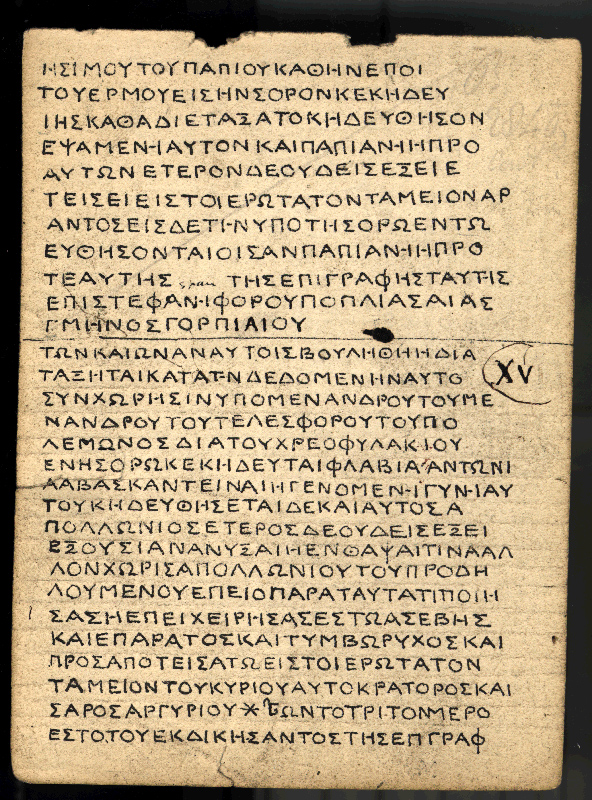 ΗΣΙΜΟΥΤΟΥΠΑΠΙΟΥΚΑΘΗΝΕΠΟΙ
ΤΟΥΕΡΜΟΥΕΙΣΗΝΣΟΡΟΝΚΕΚΗΔΕΥ
ΙΗΣΚΑΘΑΔΙΕΤΑΞΑΤΟΚΗΔΕΥΘΗΣΟΝ
ΕΨΑΜΕΝΗΑΥΤΟΝΚΑΙΠΑΠΙΑΝΗΗΠΡΟ
ΑΥΤΩΝΕΤΕΡΟΝΔΕΟΥΔΕΙΣΕΞΕΙΕ
ΤΕΙΣΕΙΕΙΣΤΟΙΕΡΩΤΑΤΟΝΤΑΜΕΙΟΝΑΡ
ΑΝΤΟΣΕΙΣΔΕΤΗΝΥΠΟΤΗΣΟΡΩΕΝΤΩ
ΕΥΘΗΣΟΝΤΑΙΟΙΣΑΝΠΑΠΙΑΝΗΗΠΡΟ
ΤΕΑΥΤΗΣ ΤΗΣΕΠΙΓΡΑΦΗΣΤΑΥΤΗΣ
ΕΠΙΣΤΕΦΑΝΗΦΟΡΟΥΠΟΠΛΙΑΣΑΙΑΣ
ΓΜΗΝΟΣΓΟΡΠΙΑΙΟΥ
ΤΩΝΚΑΙΩΝΑΝΑΥΤΟΙΣΒΟΥΛΗΘΗΗΔΙΑ
ΤΑΞΗΤΑΙΚΑΤΑΤΗΝΔΕΔΟΜΕΝΗΝΑΥΤΟ
XV
ΣΥΝΧΩΡΗΣΙΝΥΠΟΜΕΝΑΝΔΡΟΥΤΟΥΜΕ
ΝΑΝΔΡΟΥΤΟΥΤΕΛΕΣΦΟΡΟΥΤΟΥΠΟ
ΛΕΜΩΝΟΣΔΙΑΤΟΥΧΡΕΟΦΥΛΑΚΙΟΥ
ΕΝΗΣΟΡΩΚΕΚΗΔΕΥΤΑΙΦΛΑΒΙΑΑΝΤΩΝΙ
ΑΑΒΑΣΚΑΝΤΕΙΝΑΙΗΓΕΝΟΜΕΝΗΓΥΝΗΑΥ
ΤΟΥΚΗΔΕΥΘΗΣΕΤΑΙΔΕΚΑΙΑΥΤΟΣΑ
ΠΟΛΛΩΝΙΟΣΕΤΕΡΟΣΔΕΟΥΔΕΙΣΕΞΕΙ
ΕΞΟΥΣΙΑΝΑΝΥΞΑΙΗΕΝΘΑΨΑΙΤΙΝΑΑΛ
ΛΟΝΧΩΡΙΣΑΠΟΛΛΩΝΙΟΥΤΟΥΠΡΟΔΗ
ΛΟΥΜΕΝΟΥΕΠΕΙΟΠΑΡΑΤΑΥΤΑΤΙΠΟΙΗ
ΣΑΣΗΕΠΕΙΧΕΙΡΗΣΑΣΕΣΤΩΑΣΕΒΗΣ
ΚΑΙΕΠΑΡΑΤΟΣΚΑΙΤΥΜΒΩΡΥΧΟΣΚΑΙ
ΠΡΟΣΑΠΟΤΕΙΣΑΤΩΕΙΣΤΟΙΕΡΩΤΑΤΟΝ
ΤΑΜΕΙΟΝΤΟΥΚΥΡΙΟΥΑΥΤΟΚΡΑΤΟΡΟΣΚΑΙ
ΣΑΡΟΣΑΡΓΥΡΙΟΥ ΩΝΤΟΤΡΙΤΟΝΜΕΡΟ
ΕΣΤΟΤΟΥΕΚΔΙΚΗΣΑΝΤΟΣΤΗΣΕΠΓΡΑΦ